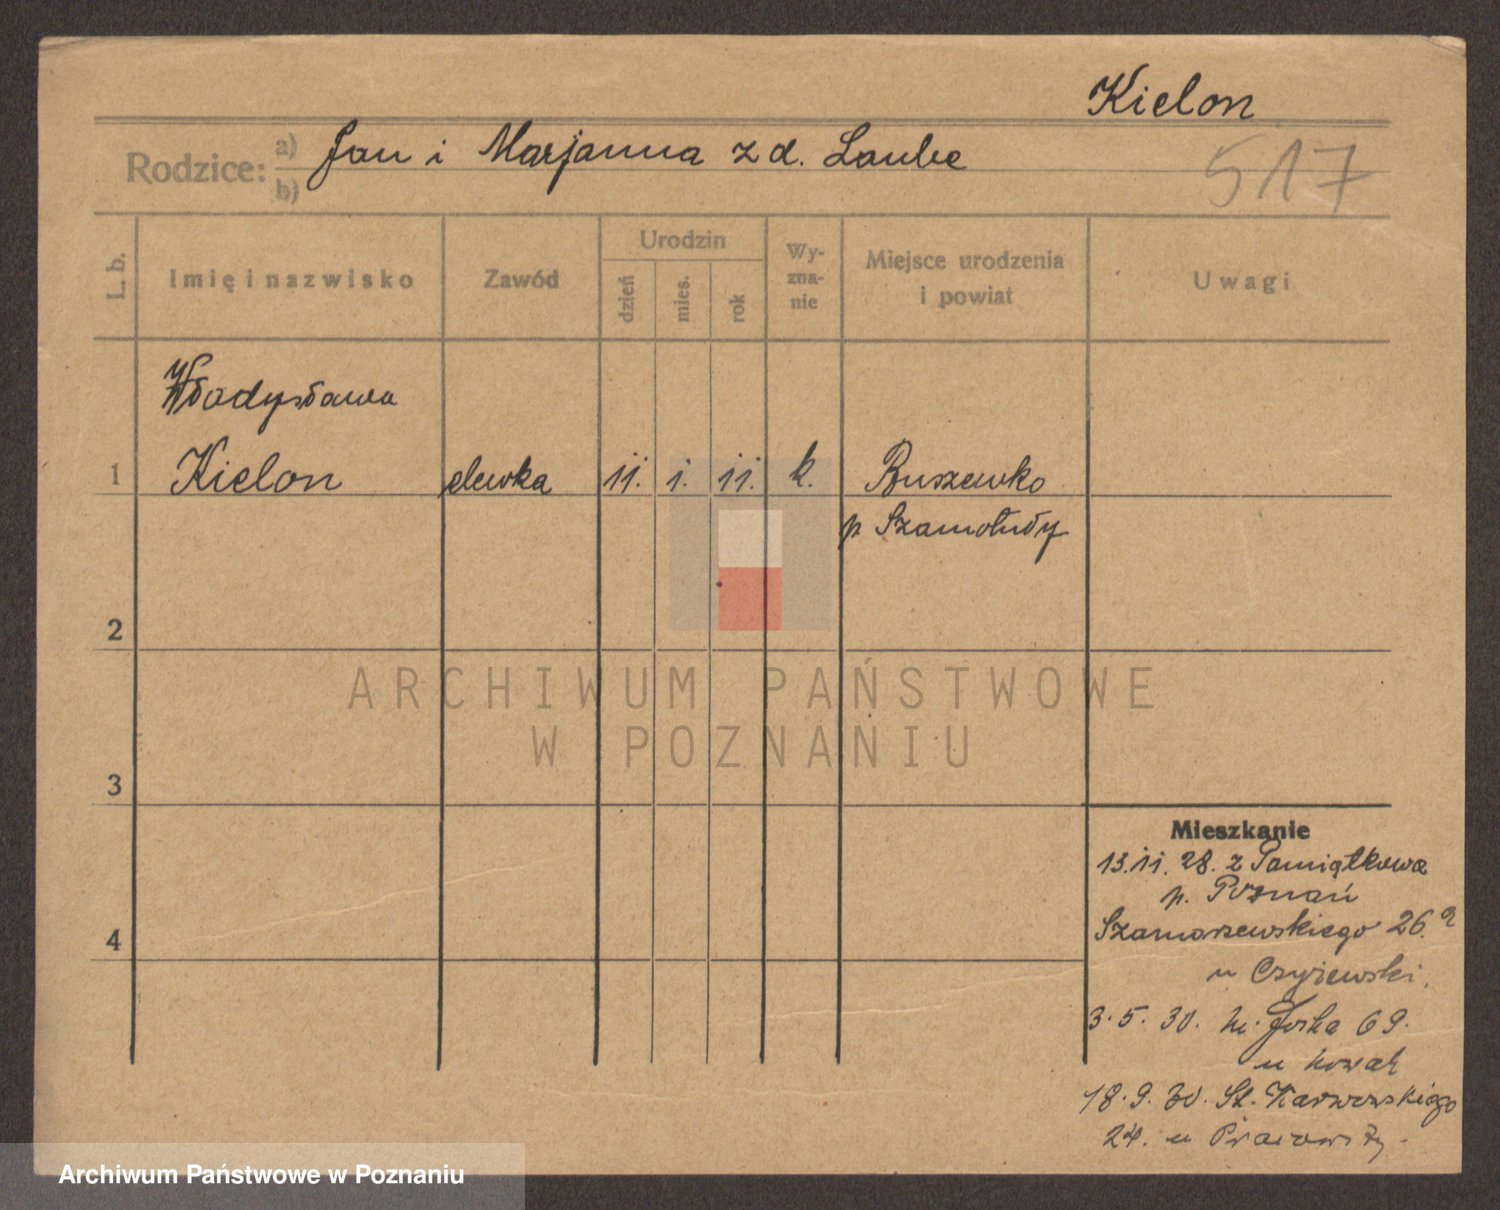 Kielon
Rodzice: a) b) Jan i Marjanna z d. Laube
517
L. b.
Imię i nazwisko
Zawód
Urodzin
dzień
mies.
rok
Wy-
zna-
nie
Miejsce urodzenia
i powiat
Uwagi
Władysława
1 Kielon elewka 11. 1. 11. k. Buszewko
p. Szamotuły
2
ARCHIWUM PAŃSTWOWE
W POZNANIU
3
Mieszkanie
13.11. 28. z Pamiątkowa
p. Poznań
4 Szamarzewskiego 26.a
u Czyżewski.
3. 5. 30. 69.
u Nowak
18. 9. 30.
24. u
Archiwum Państwowe w Poznaniu